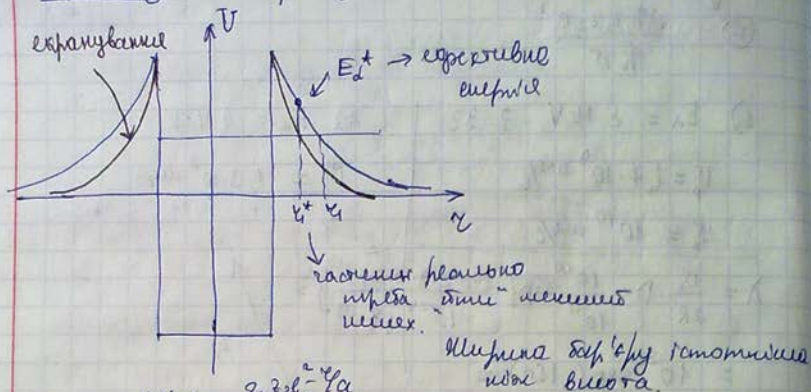 екранування
U
E_α* → ефективна
енергія
r₁* r₁
r
частинці реально
треба "йти" менший
шлях.
Ширина бар'єру істотніша
ніж висота.